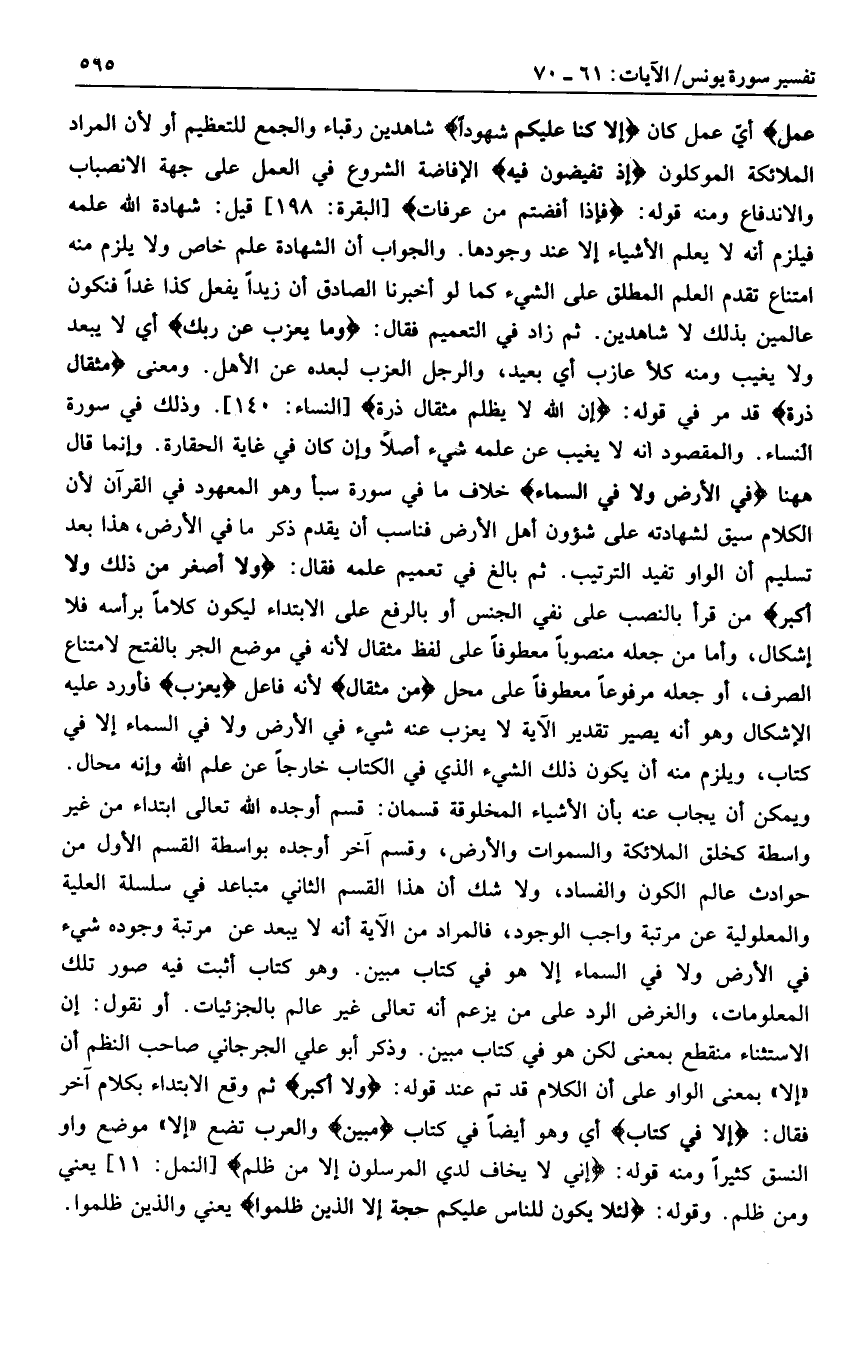 تفسير سورة يونس/ الآيات: ٦١ - ٧٠
٥٩٥
عمل﴾ أيّ عمل كان ﴿إلا كنا عليكم شهوداً﴾ شاهدين رقباء والجمع للتعظيم أو لأن المراد
الملائكة الموكلون ﴿إذ تفيضون فيه﴾ الإفاضة الشروع في العمل على جهة الانصباب
والاندفاع ومنه قوله: ﴿فإذا أفضتم من عرفات﴾ [البقرة: ١٩٨] قيل: شهادة الله علمه
فيلزم أنه لا يعلم الأشياء إلا عند وجودها. والجواب أن الشهادة علم خاص ولا يلزم منه
امتناع تقدم العلم المطلق على الشيء كما لو أخبرنا الصادق أن زيداً يفعل كذا غداً فنكون
عالمين بذلك لا شاهدين. ثم زاد في التعميم فقال: ﴿وما يعزب عن ربك﴾ أي لا يبعد
ولا يغيب ومنه كلأ عازب أي بعيد، والرجل العزب لبعده عن الأهل. ومعنى ﴿مثقال
ذرة﴾ قد مر في قوله: ﴿إن الله لا يظلم مثقال ذرة﴾ [النساء: ١٤٠]. وذلك في سورة
النساء. والمقصود انه لا يغيب عن علمه شيء أصلاً وإن كان في غاية الحقارة. وإنما قال
ههنا ﴿في الأرض ولا في السماء﴾ خلاف ما في سورة سبأ وهو المعهود في القرآن لأن
الكلام سيق لشهادته على شؤون أهل الأرض فناسب أن يقدم ذكر ما في الأرض، هذا بعد
تسليم أن الواو تفيد الترتيب. ثم بالغ في تعميم علمه فقال: ﴿ولا أصغر من ذلك ولا
أكبر﴾ من قرأ بالنصب على نفي الجنس أو بالرفع على الابتداء ليكون كلاماً برأسه فلا
إشكال، وأما من جعله منصوباً معطوفاً على لفظ مثقال لأنه في موضع الجر بالفتح لامتناع
الصرف، أو جعله مرفوعاً معطوفاً على محل ﴿من مثقال﴾ لأنه فاعل ﴿يعزب﴾ فأورد عليه
الإشكال وهو أنه يصير تقدير الآية لا يعزب عنه شيء في الأرض ولا في السماء إلا في
كتاب، ويلزم منه أن يكون ذلك الشيء الذي في الكتاب خارجاً عن علم الله وإنه محال.
ويمكن أن يجاب عنه بأن الأشياء المخلوقة قسمان: قسم أوجده الله تعالى ابتداء من غير
واسطة كخلق الملائكة والسموات والأرض، وقسم آخر أوجده بواسطة القسم الأول من
حوادث عالم الكون والفساد، ولا شك أن هذا القسم الثاني متباعد في سلسلة العلية
والمعلولية عن مرتبة واجب الوجود، فالمراد من الآية أنه لا يبعد عن مرتبة وجوده شيء
في الأرض ولا في السماء إلا هو في كتاب مبين. وهو كتاب أثبت فيه صور تلك
المعلومات، والغرض الرد على من يزعم أنه تعالى غير عالم بالجزئيات. أو نقول: إن
الاستثناء منقطع بمعنى لكن هو في كتاب مبين. وذكر أبو علي الجرجاني صاحب النظم أن
«إلا» بمعنى الواو على أن الكلام قد تم عند قوله: ﴿ولا أكبر﴾ ثم وقع الابتداء بكلام آخر
فقال: ﴿إلا في كتاب﴾ أي وهو أيضاً في كتاب ﴿مبين﴾ والعرب تضع «إلا» موضع واو
النسق كثيراً ومنه قوله: ﴿إني لا يخاف لدي المرسلون إلا من ظلم﴾ [النمل: ١١] يعني
ومن ظلم. وقوله: ﴿لئلا يكون للناس عليكم حجة إلا الذين ظلموا﴾ يعني والذين ظلموا.